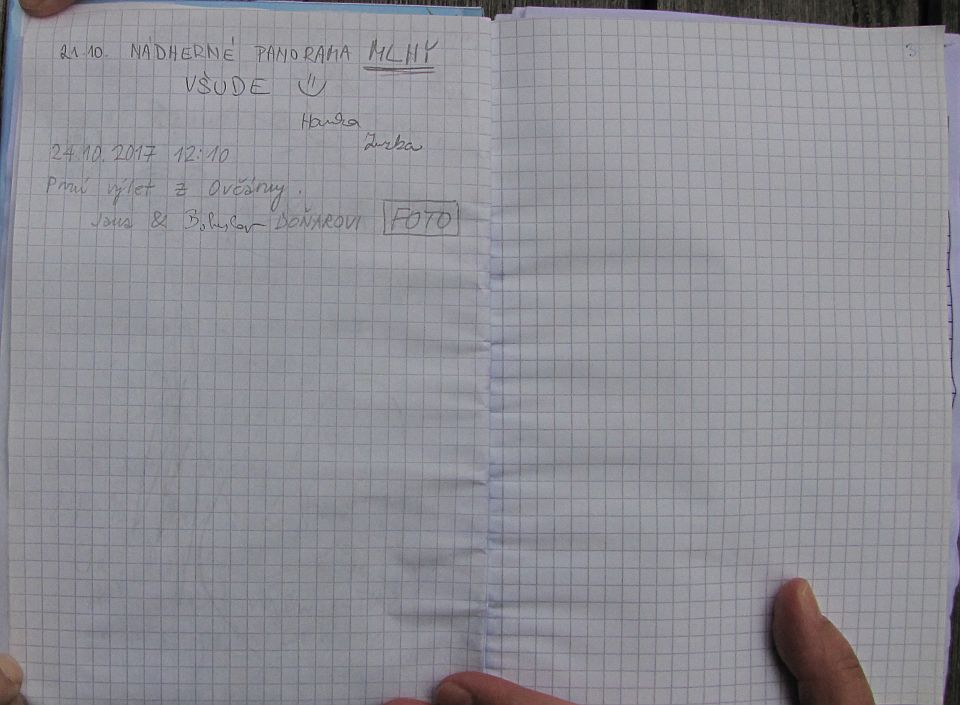 21.10. NÁDHERNÉ PANORAMA MLHY
VŠUDE
Hanka
24.10.2017 12:10
První výlet z Ovčárny.
Jana & Bohuslav DOŇAROVI FOTO
3